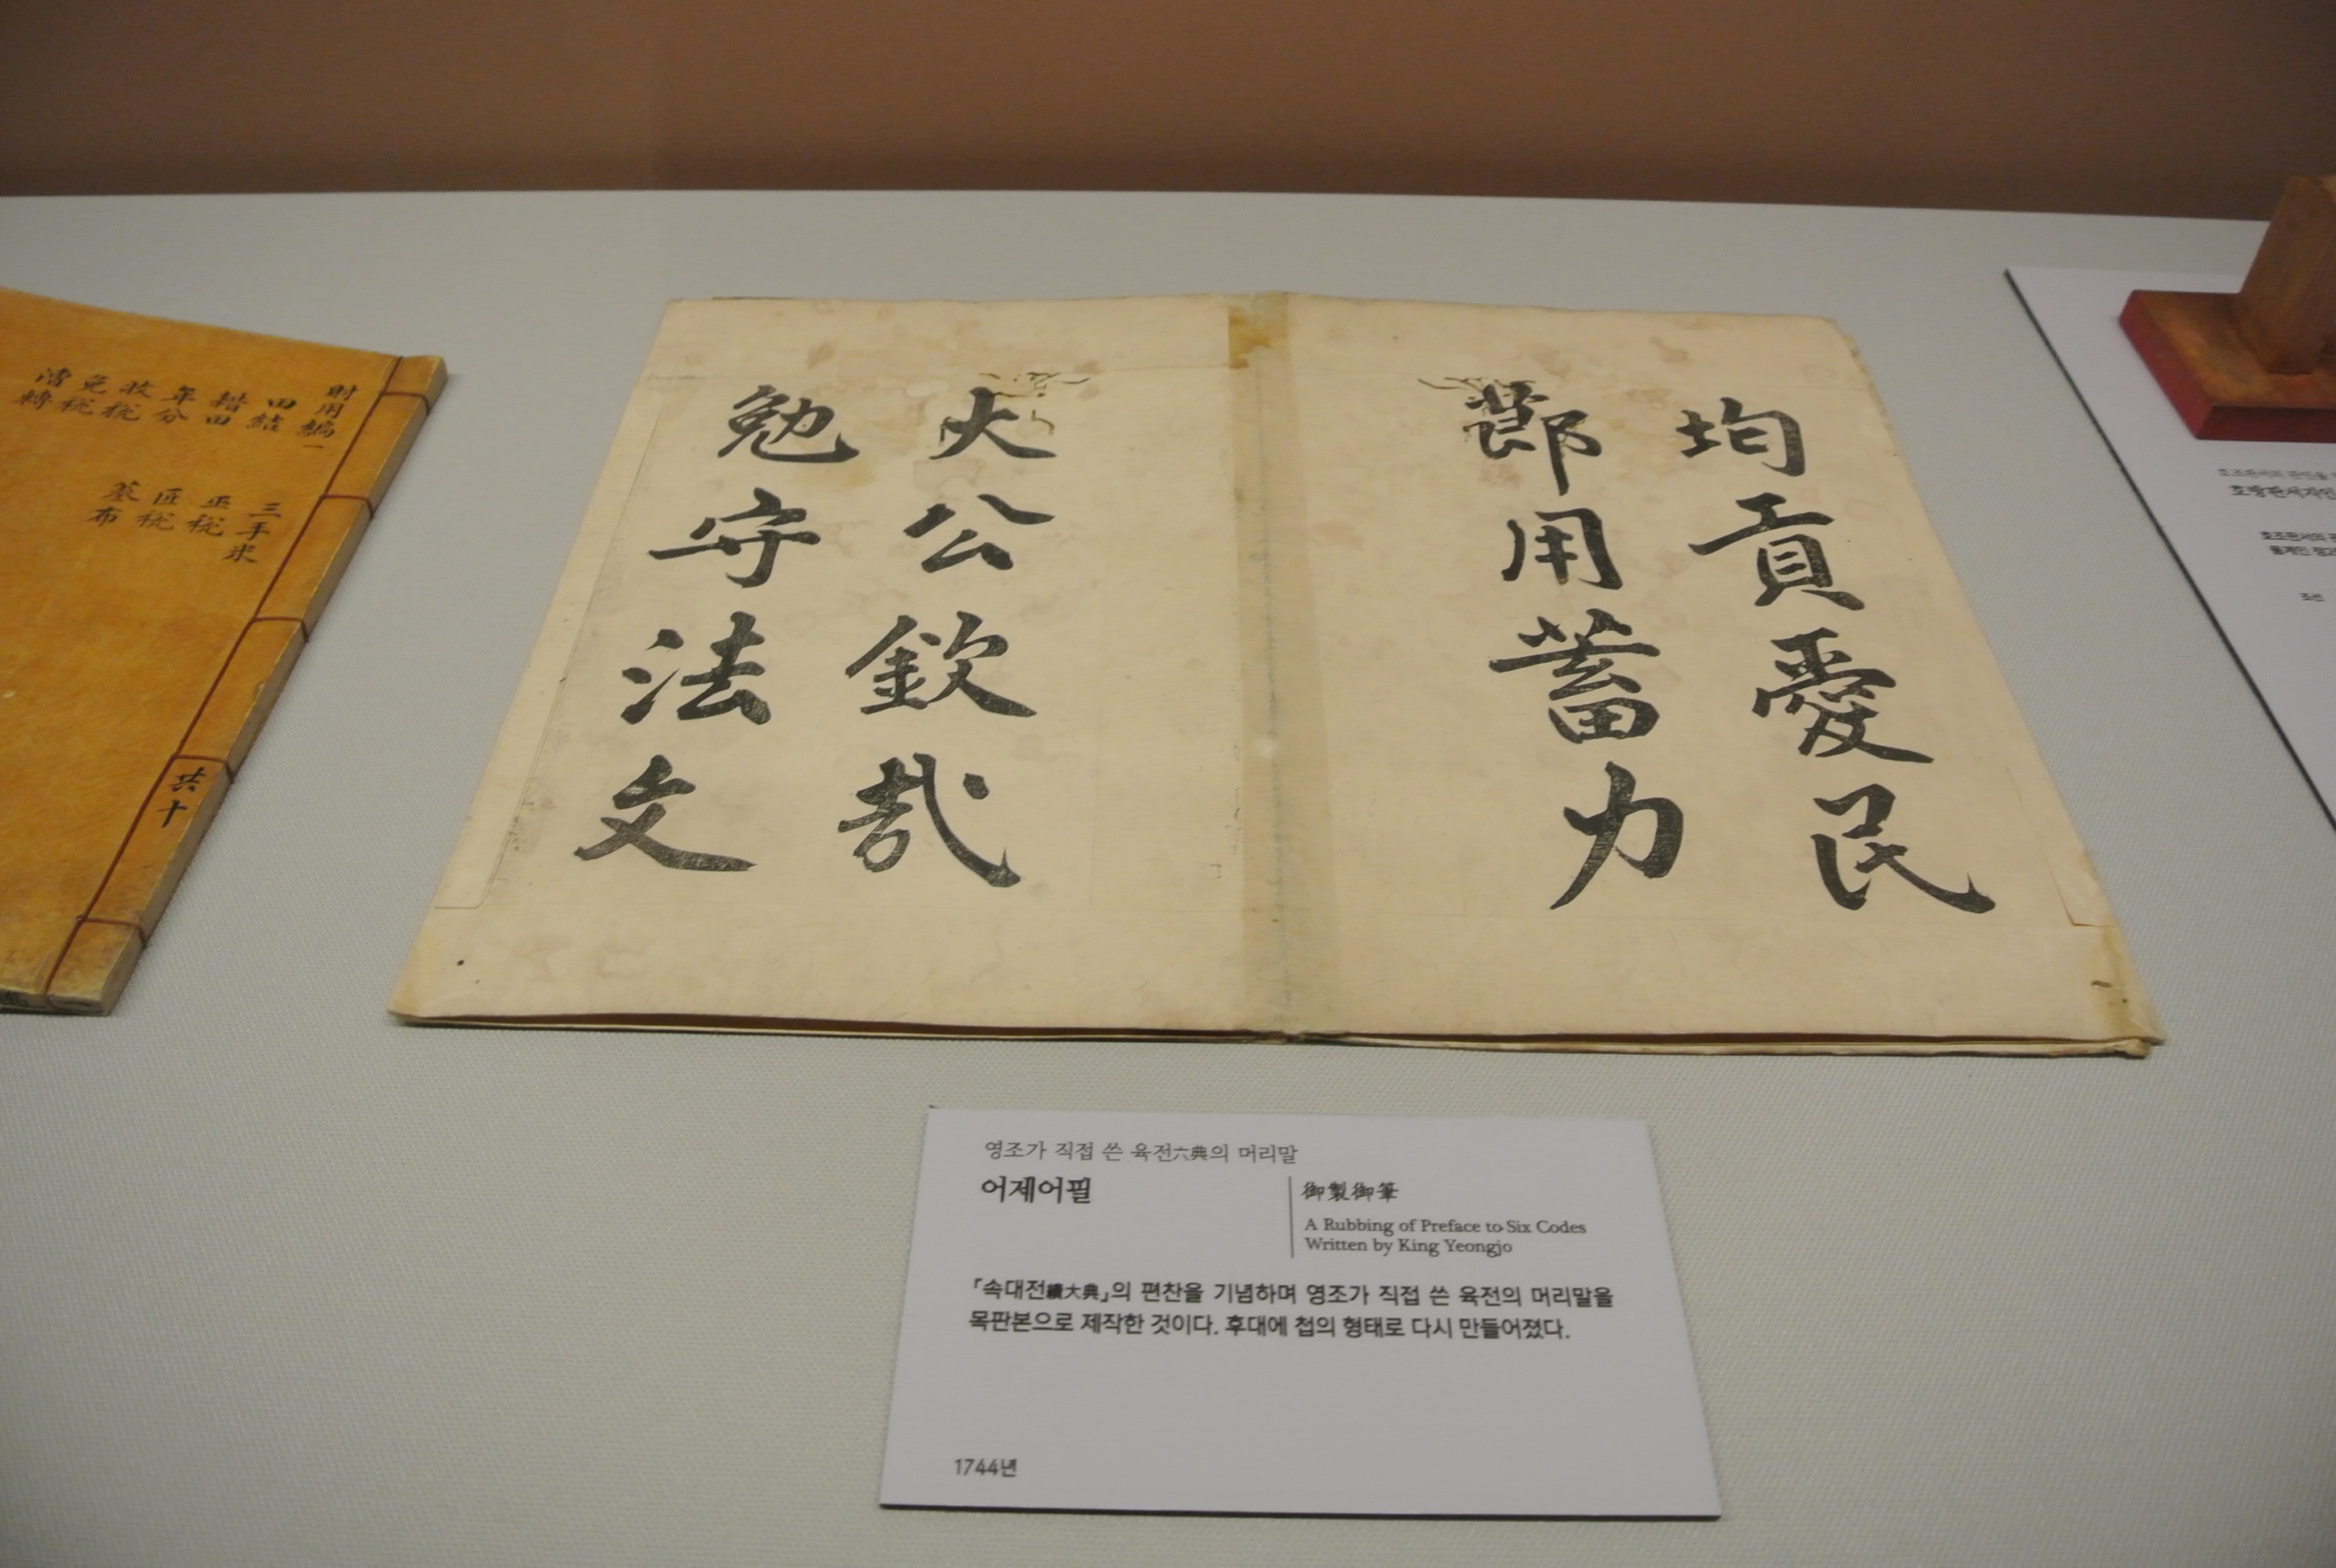 財用編一
田結
耤田
年分
收稅
免稅
漕轉
三手米
巫稅
匠稅
墓布
共十
均貢愛民
莭用蓄力
大公欽哉
勉守法文
영조가 직접 쓴 육전六典의 머리말
어제어필
御製御筆
A Rubbing of Preface to Six Codes
Written by King Yeongjo
『속대전續大典』의 편찬을 기념하며 영조가 직접 쓴 육전의 머리말을
목판본으로 제작한 것이다. 후대에 첩의 형태로 다시 만들어졌다.
1744년
호조판서의 관인을
호방판서지인
호조판서의
조선